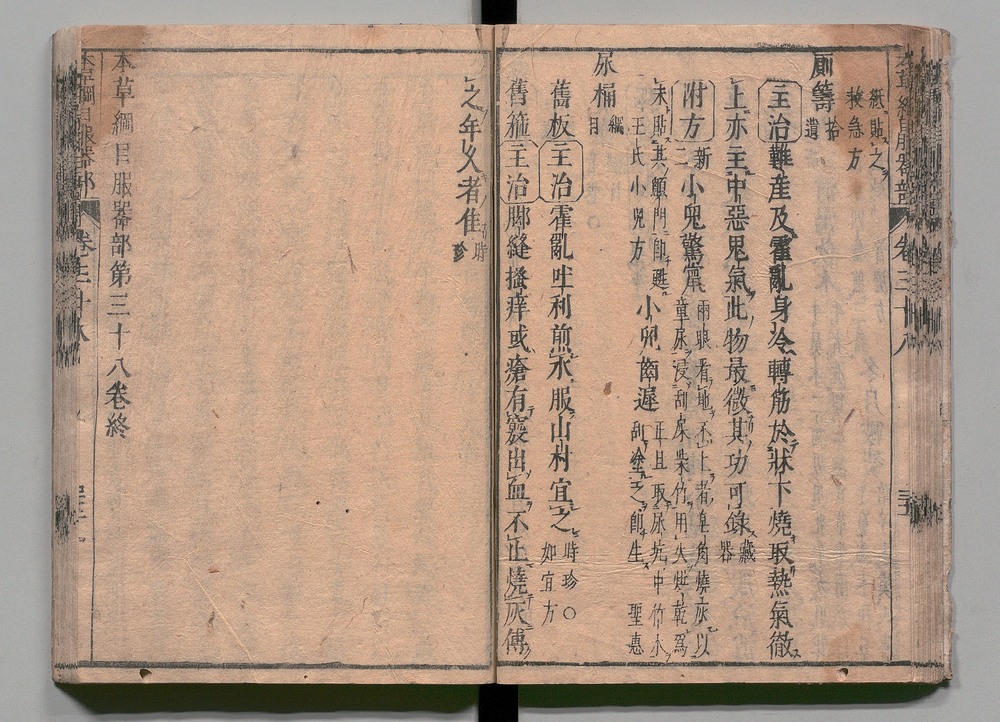 紙貼之
救急方
廁籌拾遺
主治難産及霍亂身冷轉筋於牀下燒取熱氣徹
上亦主中惡鬼氣此物最微其功可錄藏器
附方新二小兒驚竄兩眼看地不上者皂角燒灰以
童尿浸刮屎柴竹用火烘乾爲
末貼其顖門即甦王氏小兒方小兒齒遲正旦取尿坑中竹木
刮塗之即生聖惠
尿桶綱目
舊板主治霍亂吐利煎水服山村宜之時珍○
如宜方
舊箍主治脚縫搔痒或瘡有竅出血不止燒灰傅
之年久者佳時珍
本草綱目服器部第三十八卷終
卷三十八